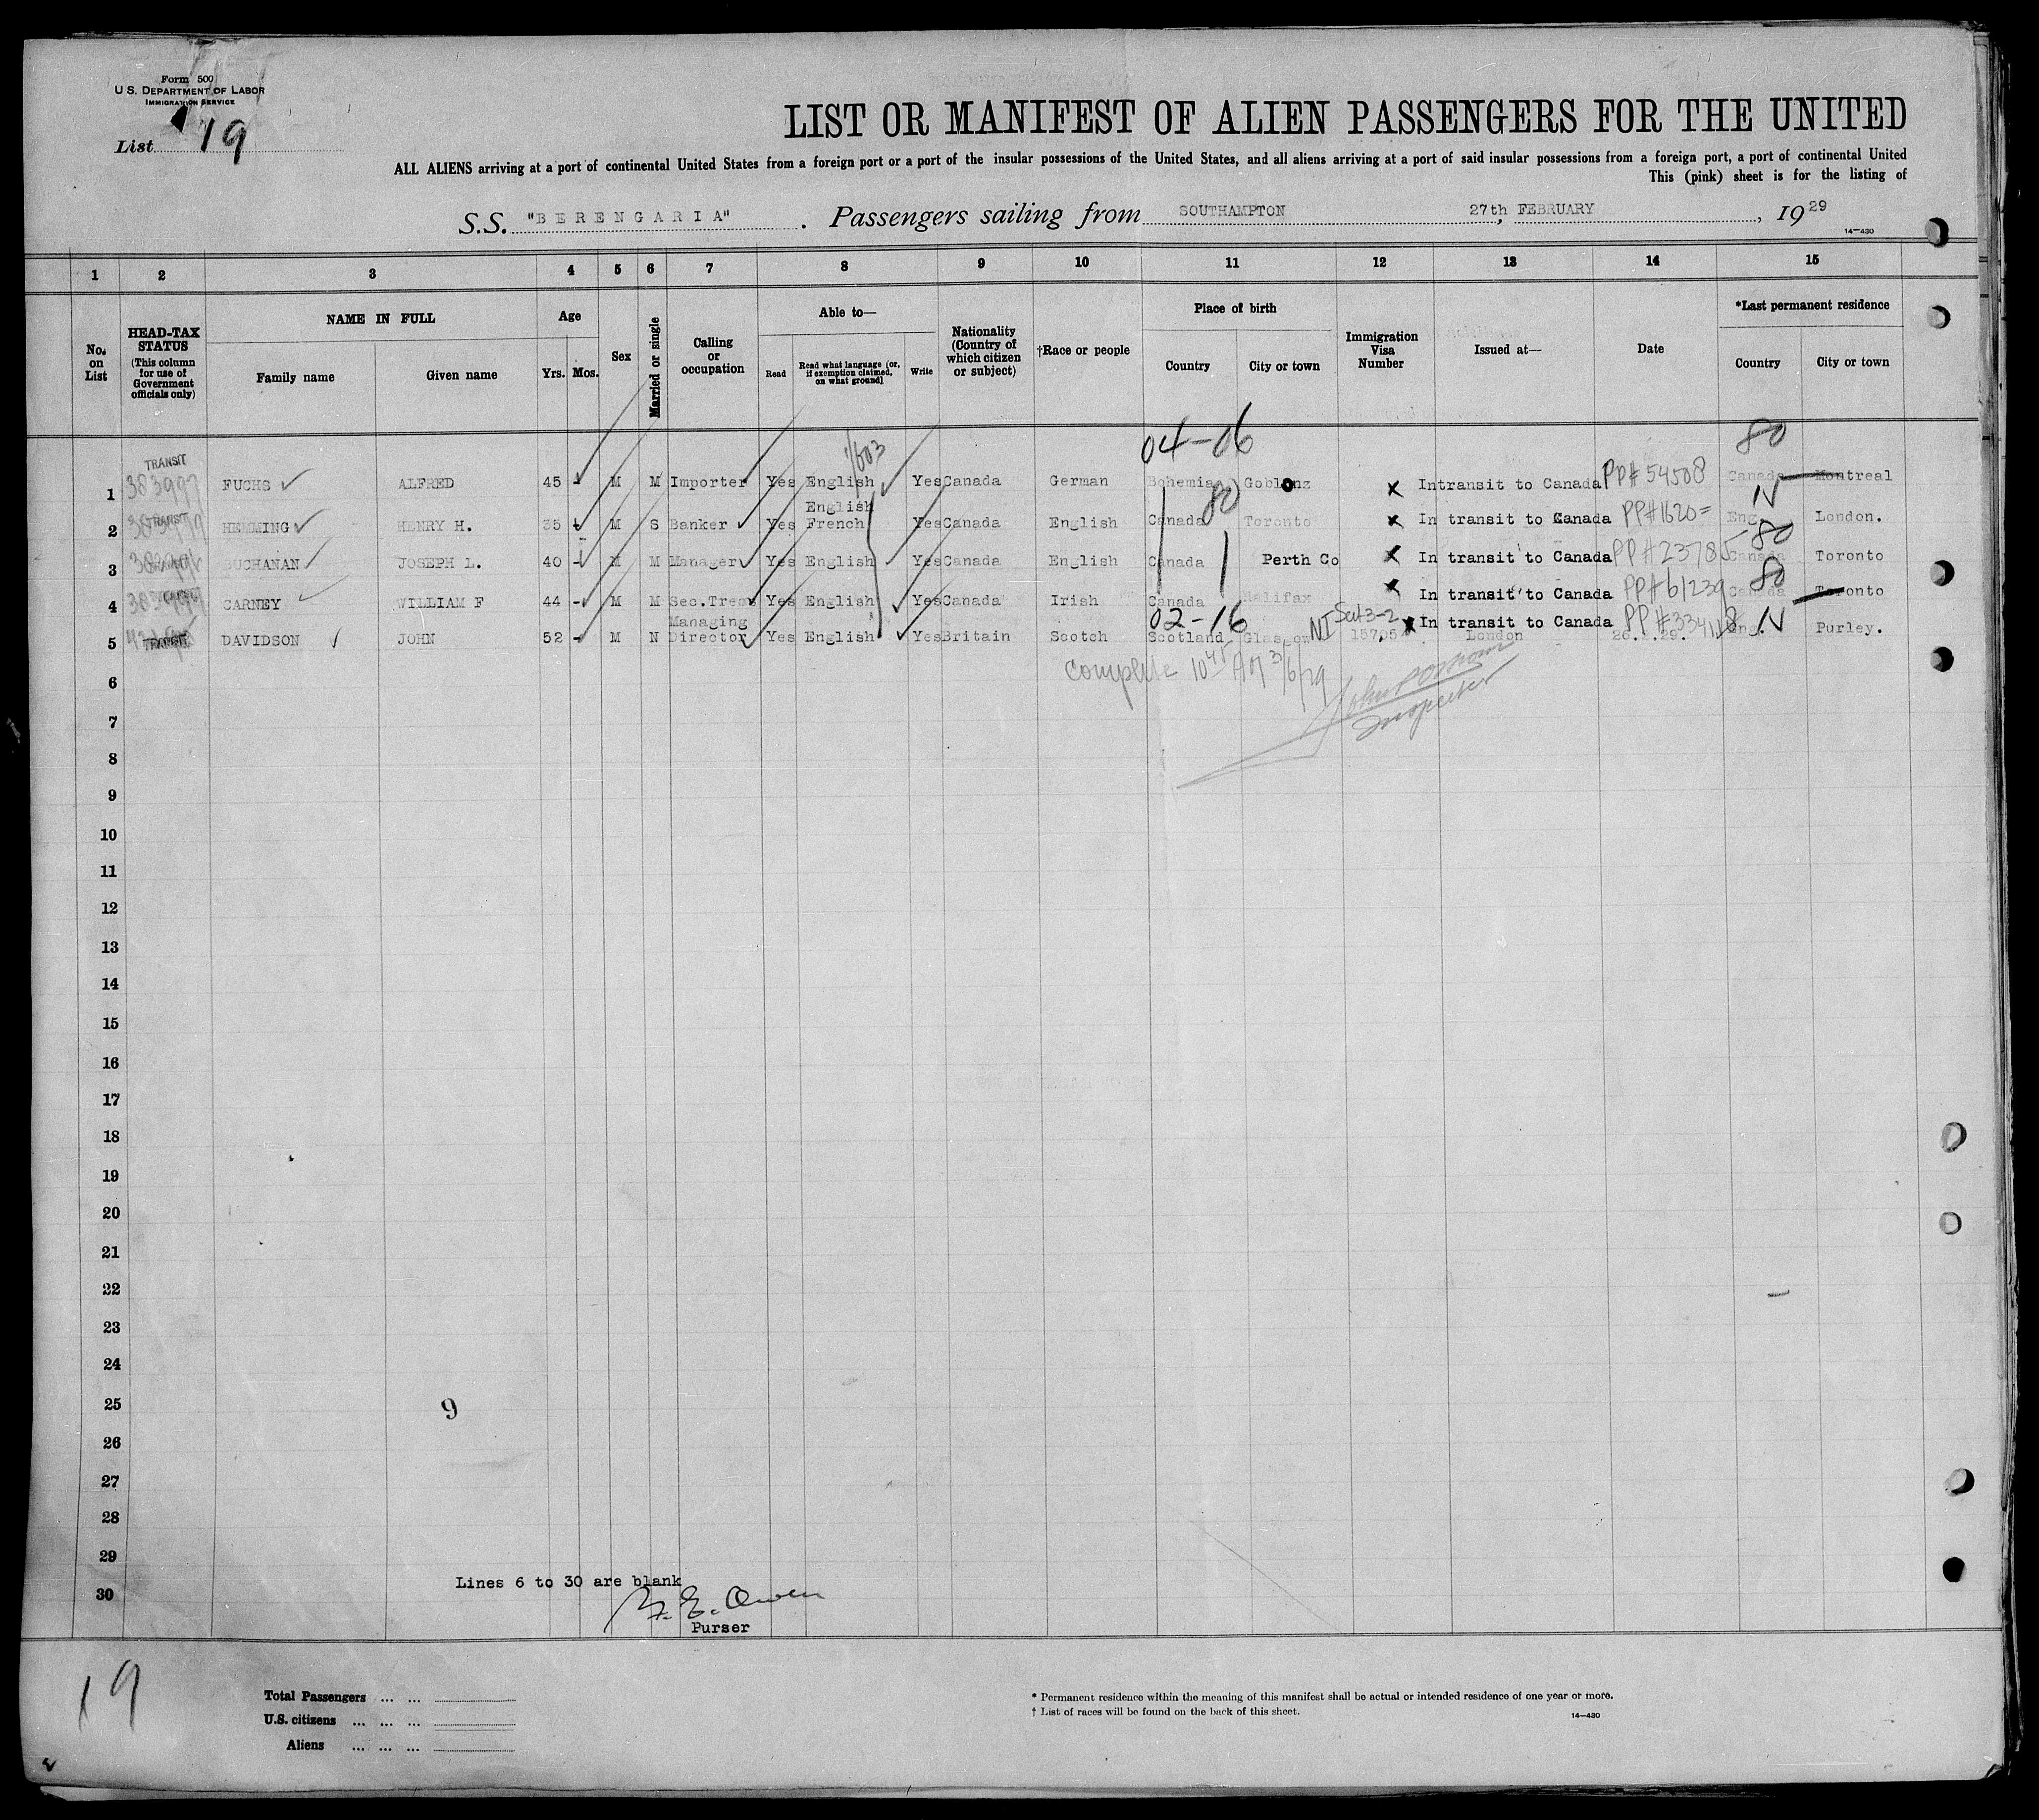 Form 500
U. S. DEPARTMENT OF LABOR
IMMIGRATION SERVICE
List 19
LIST OR MANIFEST OF ALIEN PASSENGERS FOR THE UNITED
ALL ALIENS arriving at a port of continental United States from a foreign port or a port of the insular possessions of the United States, and all aliens arriving at a port of said insular possessions from a foreign port, a port of continental United
This (pink) sheet is for the listing of
S.S. "BERENGARIA". Passengers sailing from SOUTHAMPTON, 27th FEBRUARY, 1929
14—430
1 2 3 4 5 6 7 8 9 10 11 12 13 14 15
No. on List
HEAD-TAX STATUS (This column for use of Government officials only)
NAME IN FULL
Family name
Given name
Age
Yrs. Mos.
Sex
Married or single
Calling or occupation
Able to—
Read
Read what language [or, if exemption claimed, on what ground]
Write
Nationality (Country of which citizen or subject)
†Race or people
Place of birth
Country
City or town
Immigration Visa Number
Issued at—
Date
*Last permanent residence
Country
City or town
04-06 80
1 TRANSIT 383997 FUCHS ALFRED 45 M M Importer Yes English Yes Canada German Bohemia Goblonz x Intransit to Canada PP# 54508 Canada Montreal
80 N
2 TRANSIT HEMMING HENRY H. 35 M S Banker Yes English French Yes Canada English Canada Toronto x In transit to Canada PP#1620 Eng. London.
80
3 BUCHANAN JOSEPH L. 40 M M Manager Yes English Yes Canada English Canada Perth Co x In transit to Canada PP#23785 Canada Toronto
80
4 CARNEY WILLIAM F 44 - M M Sec.Treas Yes English Yes Canada Irish Canada Halifax x In transit to Canada PP#61239 Canada Toronto
02-16 NI Sec 3-2 N
5 TRANSIT DAVIDSON JOHN 52 - M N Managing Director Yes English Yes Britain Scotch Scotland Glasgow x In transit to Canada London Eng. Purley.
Complete 10 45 AM 3/6/29
Inspector
6
7
8
9
10
11
12
13
14
15
16
17
18
19
20
21
22
23
24
25
9
26
27
28
29
30
Lines 6 to 30 are blank
Owen
Purser
19
Total Passengers ... ...
U.S. citizens ... ... ...
Aliens ... ... ...
* Permanent residence within the meaning of this manifest shall be actual or intended residence of one year or more.
† List of races will be found on the back of this sheet.
14—430